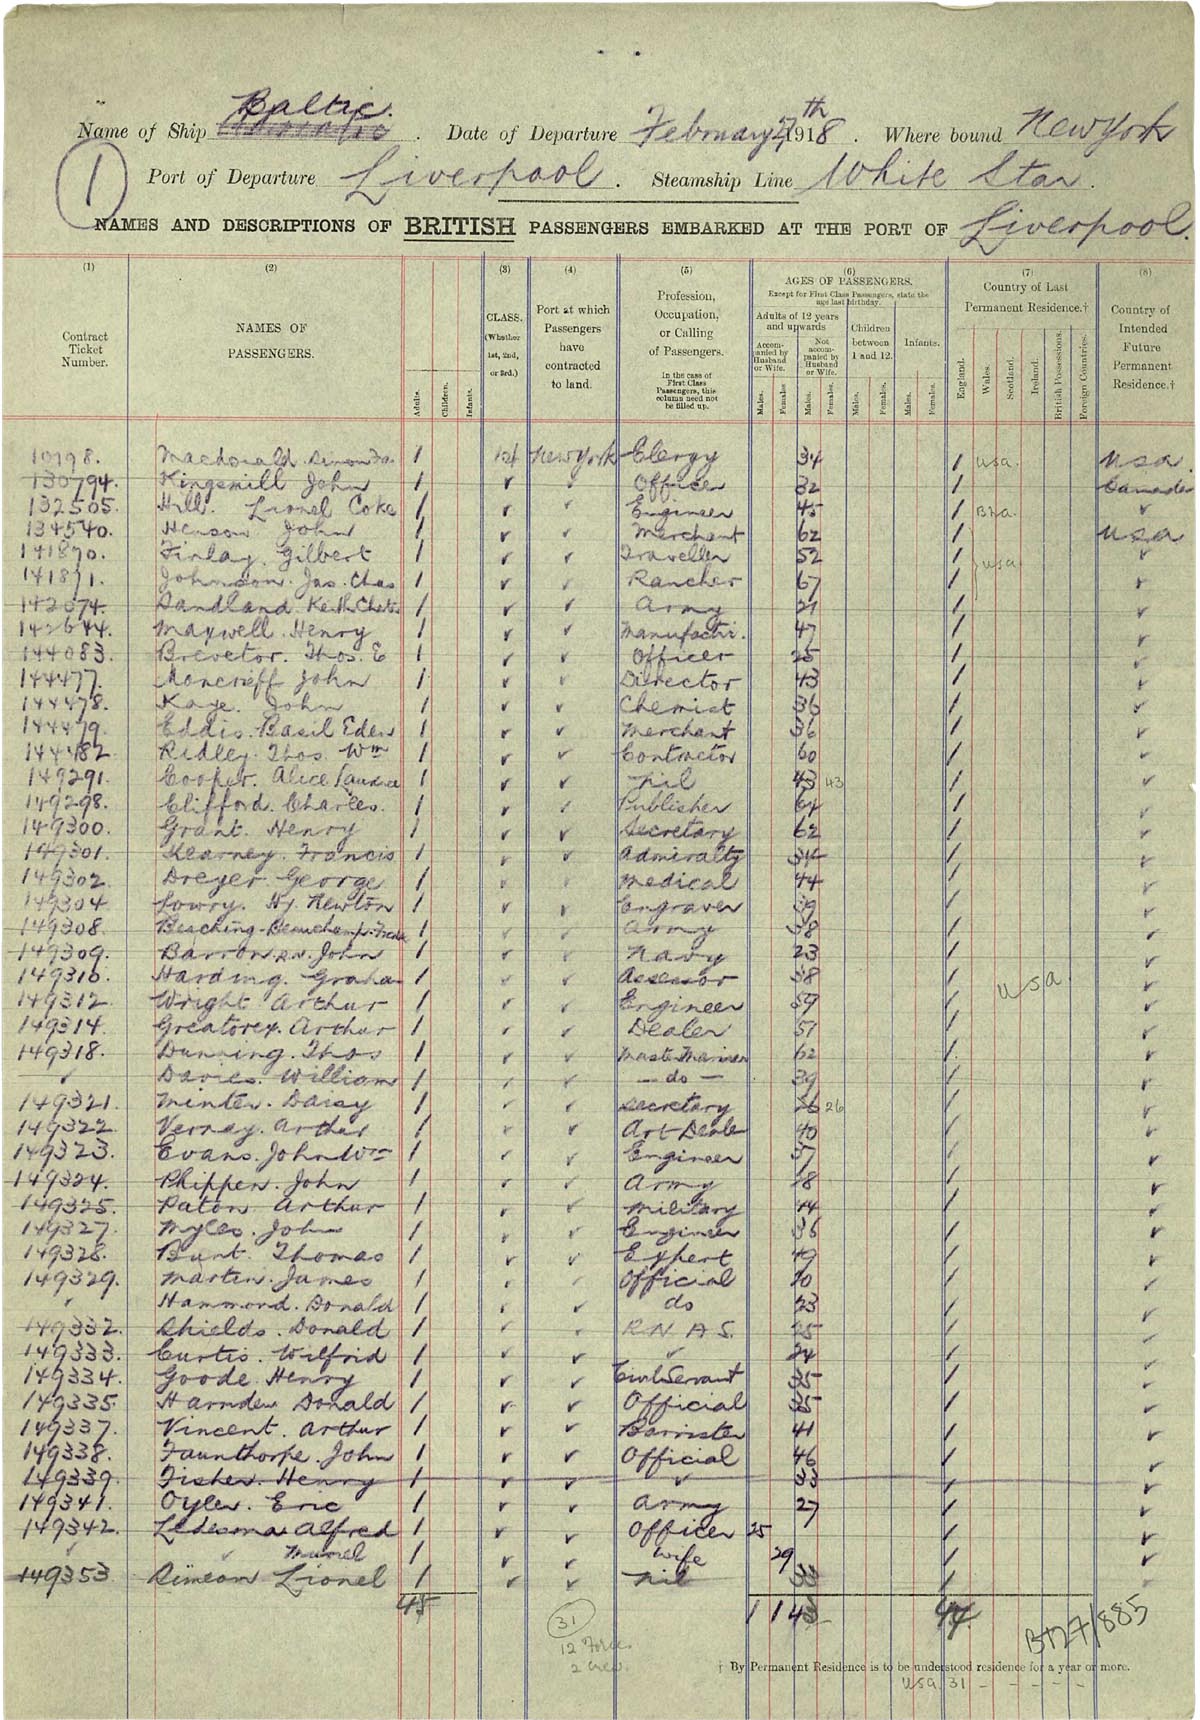 Name of Ship Baltic. Date of Departure February 27th 1918. Where bound New York
1 Port of Departure Liverpool. Steamship Line White Star.
NAMES AND DESCRIPTIONS OF BRITISH PASSENGERS EMBARKED AT THE PORT OF Liverpool.
(1) (2) (3) (4) (5) (6) (7) (8)
Contract Ticket Number.
NAMES OF PASSENGERS.
Adults. Children. Infants.
CLASS. (Whether 1st, 2nd, or 3rd.)
Port at which Passengers have contracted to land.
Profession, Occupation, or Calling of Passengers.
In the case of First Class Passengers, this column need not be filled up.
AGES OF PASSENGERS.
Except for First Class Passengers, state the age last birthday.
Adults of 12 years and upwards
Accompanied by Husband or Wife.
Not accompanied by Husband or Wife.
Children between 1 and 12.
Infants.
Males. Females. Males. Females. Males. Females. Males. Females.
Country of Last Permanent Residence.†
England. Wales. Scotland. Ireland. British Possessions. Foreign Countries.
Country of Intended Future Permanent Residence.†
10198. Macdonald 1 1st New York Clergy 34 1 USA. USA.
130794. Kingsmill John 1 Officer 32 1 Canada
132505. Hill. Lionel Coke 1 Engineer 45 1
134540. Henson John 1 Merchant 62 1 USA
141870. Finlay. Gilbert 1 Traveller 52 1 USA
141871. Johnson. Jas. Chas 1 Rancher 67 1
142074. Sandland. Keith 1 Army 21 1
142644. Maxwell. Henry 1 Manufactr. 47 1
144083. Brevetor. Thos. E 1 Officer 25 1
144477. Moncrieff John 1 Director 43 1
144478. Kaye. John 1 Chemist 36 1
144479. Eddis. Basil Eden 1 Merchant 36 1
144482 Ridley. Thos. Wm 1 Contractor 60 1
149291. Cooper. Alice 1 nil 43 43 1
149298. Clifford. Charles. 1 Publisher 64 1
149300. Grant. Henry 1 Secretary 62 1
149301. Kearney. Francis 1 Admiralty 34 1
149302. Dreyer. George 1 Medical 44 1
149304 Lowry. Hy. Newton 1 Engraver 39 1
149308. Besching-Beauchamp. 1 Army 38 1
149309. Barron R.N. John 1 Navy 23 1
149310. Harding. Graham 1 Assessor 58 1 USA
149312 Wright Arthur 1 Engineer 59 1
149314. Greatorex. Arthur 1 Dealer 51 1
149318. Dunning. Thos 1 Master Mariner 62 1.
Davies. William 1 — do — 39 1
149321. Minter. Daisy 1 Secretary 26 26 1
149322. Verney. Arthur 1 Art Dealer 40 1
149323. Evans. John Wm 1 Engineer 37 1
149324. Phippen. John 1 Army 1
149325. Paton Arthur 1 Military 44 1
149327. Myles. John 1 Engineer 36 1
149328. Bunt. Thomas 1 Expert 49 1
149329. Martin. James 1 Official 1
Hammond. Donald 1 do 23 1
149332. Shields. Donald 1 R.N.A.S. 25 1
149333. Curtis. Wilfrid 1 24 1
149334. Goode. Henry 1 Civil Servant 35 1
149335 Harnden Donald 1 Official 35 1
149337. Vincent. Arthur 1 Barrister 41 1
149338. Faunthorpe. John 1 Official 46 1
149339. Fisher. Henry 1 33 1
149341. Oyler. Eric 1 Army 27 1
149342. Ledesma Alfred 1 Officer 25 1
Muriel 1 Wife 29 1
149353 Simeon Lionel 1 nil 33 1
45 1 1 43 44
31
12 Forces
2 Crew.
BT27/885
† By Permanent Residence is to be understood residence for a year or more.
USA 31 - - - - -